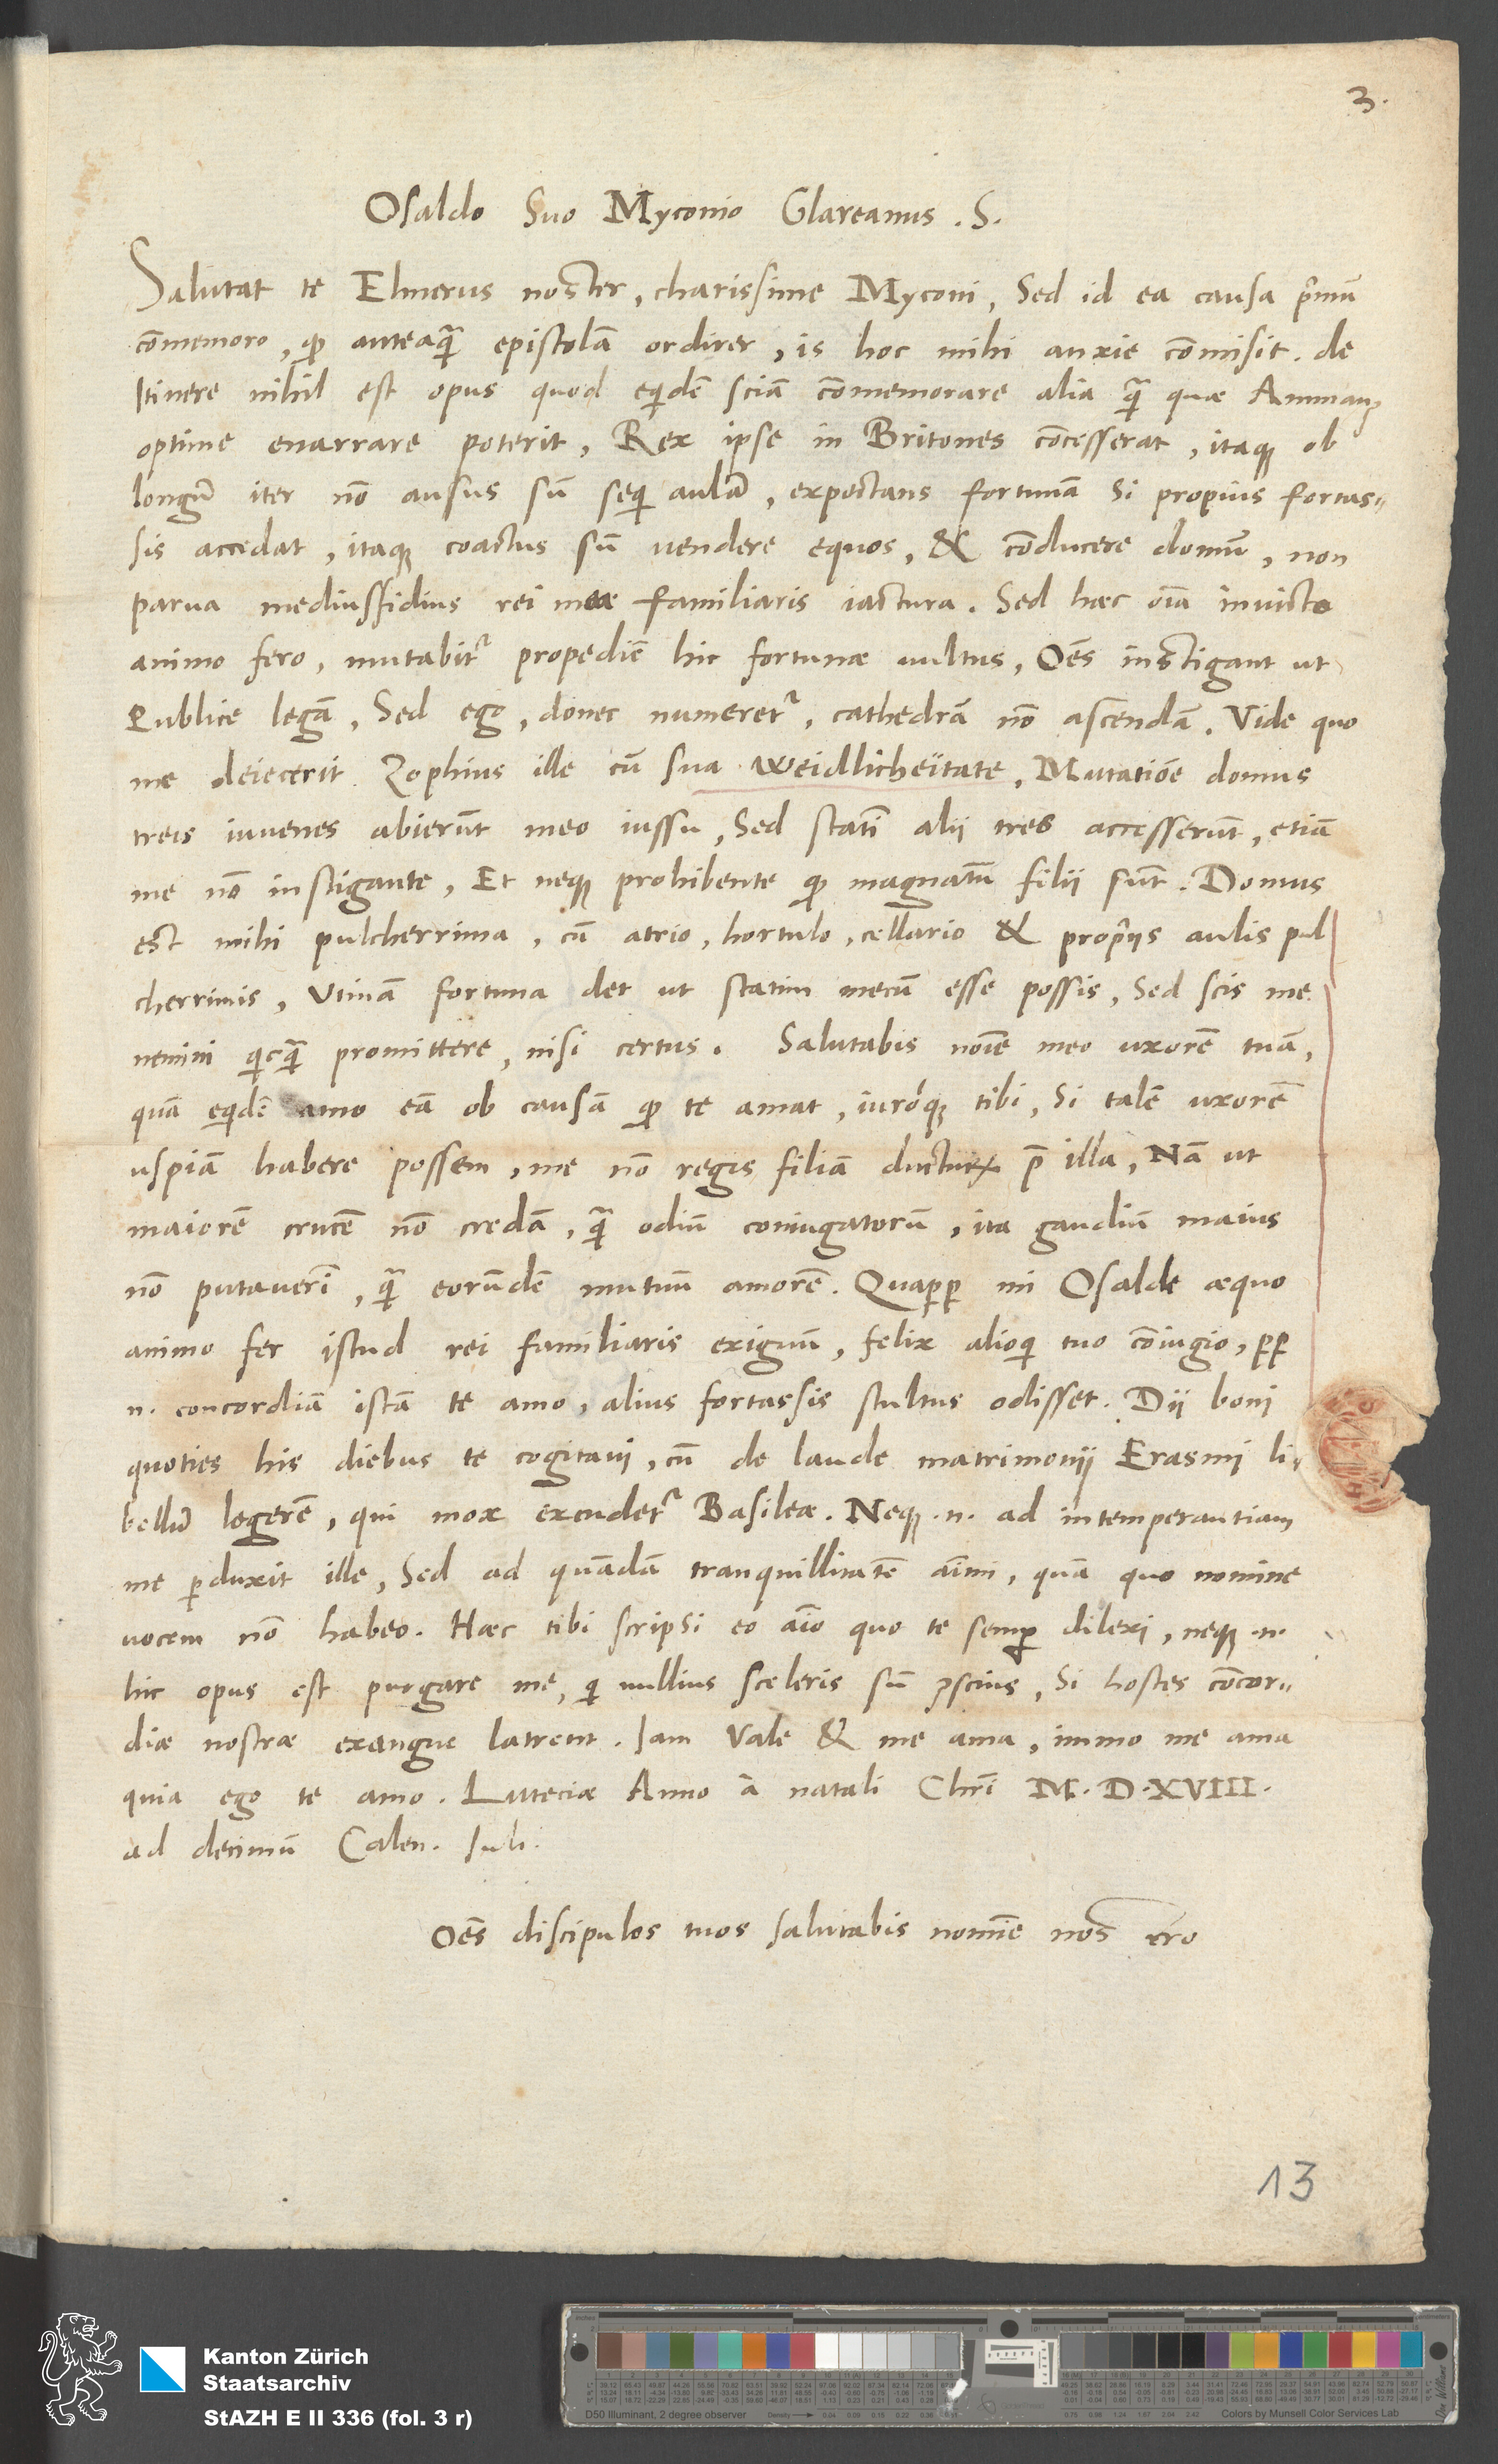 3.
Osaldo Suo Myconio Glareanus . S.
Salutat te Elmerus noster, charissime Myconi, Sed id ea causa prīmū
cōmemoro, qȝ anteaq̄ epistolā ordirer, is hoc mihi anxie cōmisit. de
Itinere nihil est opus quod eqidē sciā cōmemorare alia q̄ quæ Ammanꝰ
optime enarrare poterit, Rex ipse in Britones cōcesserat, itaqȝ ob
longū iter nō ausus sū seqi aulā, expectans fortunā si propius fortas„
sis accedat, itaqȝ coactus sū vendere equos, & cōducere domū, non
parua mediusfidius rei meæ familiaris iactura. Sed hæc oīa invicto
animo fero, mutabit᷑ propediē hic fortunæ uultus, Oēs instigant ut
Publice legā, Sed ego, donec numeret᷑, cathedrā nō ascendā. Vide quo
me deiecerit Zophius ille cū sua weidlicheitate, Mutatiōe domus
treis iuvenes abierūt meo iussu, Sed statī alii tres accesserūt, etiā
me nō instigante, Et neqȝ prohibente qȝ magnatū filii sūt. Domus
est mihi pulcherrima, cū atrio, hortulo, cellario & propriis aulis pul
cherrimis, Utinā fortuna det ut statim mecū esse possis, Sed scis me
nemini qicq̄ promittere, nisi certus. Salutabis noīe meo uxorē tuā,
quā eqidē amo eā ob causā qȝ te amat, iuróqȝ tibi, Si talē uxorē
uspiā habere possem, me nō regis filiā ducturꝝ p̄ illa, Nā ut
maiorē crucē nō credā, q̄ odiū coniugatorū, ita gaudiū maius
nō putaverī, q̄ eorūdē mutuū amorē. Quaꝓp mi Osalde æquo
animo fer istud rei familiaris exiguū, felix alioqi tuo cōiugio, ꝓp
.n. concordiā istā te amo, alius fortassis stultus odisset. Dii boni
quoties his diebus te cogitavi, cū de laude matrimonii Erasmi li„
bellū legerē, qui mox excudet᷑ Basileæ. Neqȝ .n. ad intemperantiam
me ꝑduxit ille, Sed ad quādā tranquillitatē aīmi, quā quo nomine
vocem nō habeo. Hæc tibi scripsi eo aīo quo te semꝑ dilexi, neqȝ .n.
hic opus est purgare me, qi nullius sceleris sū ꝯscius, Si hostes cōcor„
diæ nostræ exangue latrent. Iam Vale & me ama, immo me ama
quia ego te amo. Luteciæ Anno à natali Chrī M. D. XVIII.
ad decimū Calen. Iuli.
Oēs discipulos tuos salutabis nomīe nostro
13
Kanton Zürich
Staatsarchiv
StAZH E II 336 (fol. 3 r)
D50 Illuminant, 2 degree observer
Density
Colors by Munsell Color Services Lab